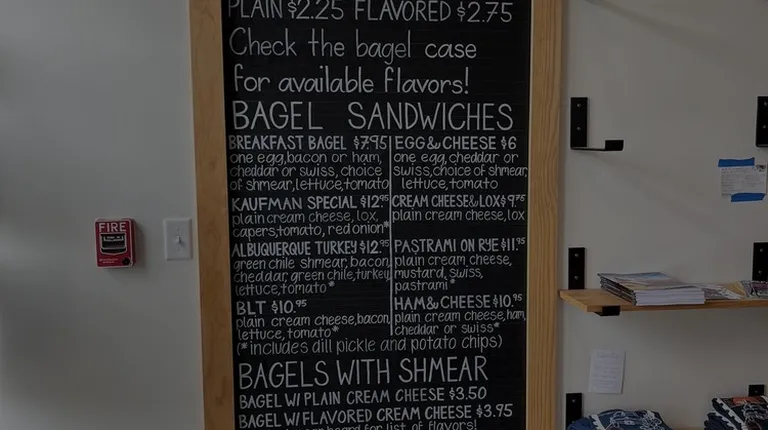 PLAIN $2.25 FLAVORED $2.75
Check the bagel case
for available flavors!
BAGEL SANDWICHES
BREAKFAST BAGEL $7.95
one egg, bacon or ham,
cheddar or swiss, choice
of shmear, lettuce, tomato
EGG & CHEESE $6
one egg, cheddar or
swiss, choice of shmear,
lettuce, tomato
KAUFMAN SPECIAL $12.95
plain cream cheese, lox,
capers, tomato, red onion*
CREAM CHEESE & LOX $9.75
plain cream cheese, lox
ALBUQUERQUE TURKEY $12.95
green chile shmear, bacon,
cheddar, green chile, turkey,
lettuce, tomato*
PASTRAMI ON RYE $11.95
plain cream cheese,
mustard, swiss,
pastrami*
BLT $10.95
plain cream cheese, bacon,
lettuce, tomato*
HAM & CHEESE $10.95
plain cream cheese, ham,
cheddar or swiss*
(*includes dill pickle and potato chips)
BAGELS WITH SHMEAR
BAGEL W/ PLAIN CREAM CHEESE $3.50
BAGEL W/ FLAVORED CREAM CHEESE $3.95
board for list of flavors!
FIRE